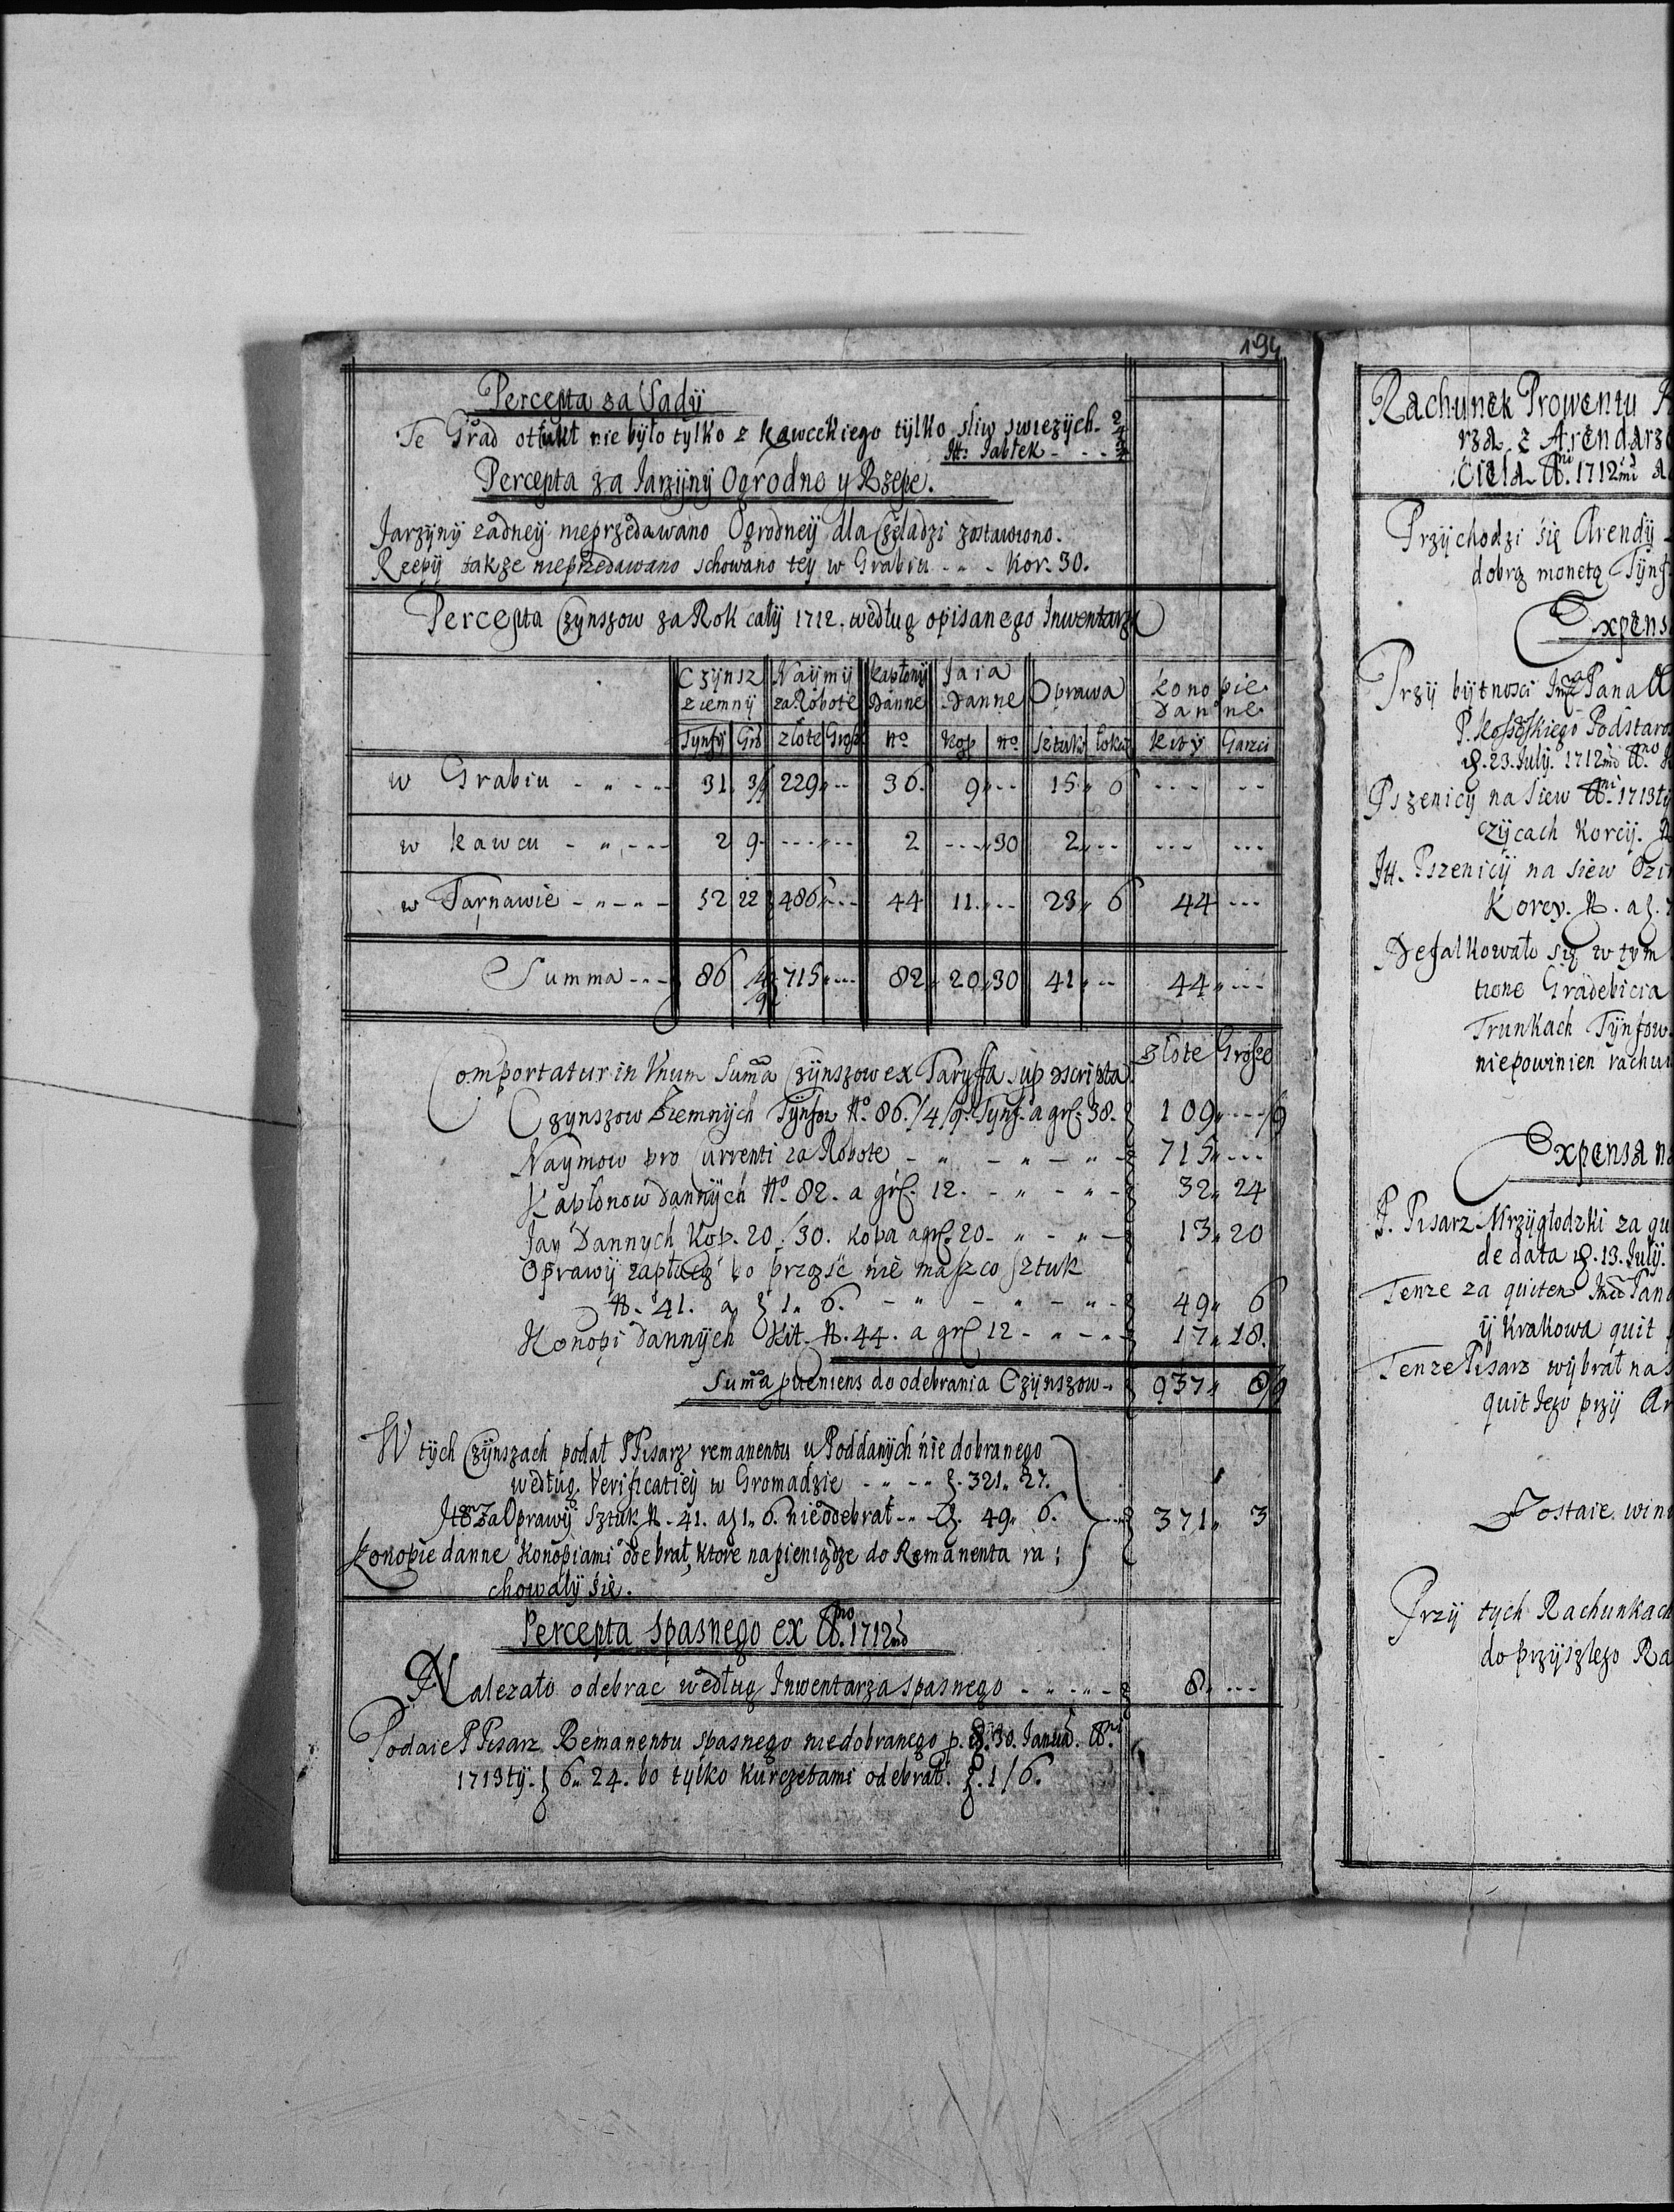 194
Percepta za Sady
Te Grad ottukł nie było tylko z kawcekiego tylko sliw swiezych - 2/4
Itt: Jabłek - - - 
Percepta za Jarzyny Ogrodne y Rzepe.
Jarzyny zadney nieprzedawano Ogrodney dla Czeladzi zostawiono.
Rzepy takze nieprzedawano schowano tey w Grabiu - " - Kor. 30.
Percepta Czynszow za Rok cały 1712. według opisanego Inwentarza
Czynsz ziemny | Naymy za Robote | Kapłony Danne | Jaia Danne | Oprawa | konopie danne
Tynfy | Gro | złote | Grosz | No | Kop | No | Sztuk | łokci | kity | Garści
w Grabiu - " - - - 31. 3/9 229 " - - 36. 9 " - - 15 " 6 - - - - -
w kawcu - " - - - 2 9 - - - " - - 2 - - - " 30 2 " - - - - - - - -
w Tarnawie - " - " - 52 22 486 " - - - 44 11. " - - 23 " 6 44 - - -
Summa - - - 86 4/9 715 " - - - 82 " 20 " 30 41 " - - 44 " - - -
złote | Grosze
Comportatur in Vnum Suma Czynszow ex Taryffa suprascripta.
Czynszow Ziemnych Tynfow No. 86. /4/9. Tynf. a grs. 38. 109 " - - - /9
Naymow pro Currenti za Robote - " - " - " - 715 " - - -
Kapłonow dannych No. 82. a grs. 12. - " - " - 32 " 24
Jay Dannych Kop. 20. /30. kopa a grs. 20 - " - " - 13 " 20
Oprawy zapłacą bo prząść nie masz co sztuk
N. 41. a zł 1 " 6. - " - " - " - 49 " 6
Konopi dannych Kit. N. 44. a grs 12 - " - " - 17 " 18.
Suma proveniens do odebrania Czynszow - 937 " 8/9
W tych Czynszach podał P Pisarz remanentu u Poddanych nie dobranego
według Verificatiey w Gromadzie - " - - zł. 321 " 27.
Item za Oprawy Sztuk N. 41. a zł 1 " 6. nieodebrał - - zł. 49 " 6. - 371 " 3
konopie danne konopiami odebrał, ktore na pieniądze do Remanenta ra :
chowały się.
Percepta spasnego ex Ao. 1712mo
Nalezało odebrac według Inwentarza spasnego - " - " - 8 " - - -
Podaie P Pisarz Remanentu spasnego niedobranego p. d. 30. Janua. Ai.
1713ty. zł 6 " 24. bo tylko kurczetami odebrał. zł. 1/6.
Rachunek Prowentu
rza z Arendarz
Ciela Ai. 1712mi
Przychodzi się Arendy
dobrą monetą Tynf
Expens
Przy bytnosci Pana
P. Kossowskiego Podstaro
d. 23. July. 1712mo Ao.
Pszenicy na Siew Ai. 1713ty
czycach korcy.
Itt. Pszenicy na siew Ozi
Korcy. N. a zł.
Defalkowało się w tym
tione Gradebicia
Trunkach Tynfow
niepowinien rachu
Expensa na
P. Pisarz Mrzygłodzki za qu
de data d. 13. July.
Tenze za quitem Pana
y Krakowa quit
Tenze Pisarz wybrał na
quit Jego przy
Zostaie win
Przy tych Rachunkach
do przyszłego Ra